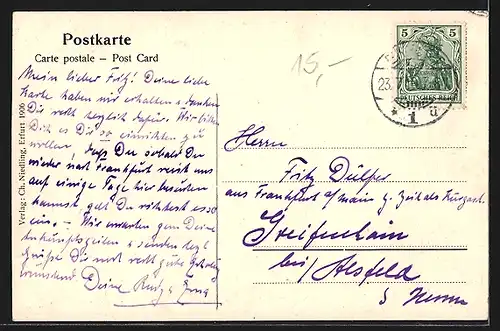 Postkarte
Carte postale – Post Card
15,-
5 5
DEUTSCHES REICH
23.
* 1 ü
Verlag: Ch. Niedling, Erfurt 1906
Mein lieber Fritz! Deine liebe
Karte haben wir erhalten & danken
Dir recht herzlich dafür. Wir bitten
Dich es Dir so einrichten zu
wollen, dass Du sobald Du
wieder nach Frankfurt reist uns
auf einige Tage hier besuchen
kannst,
ein. – Wir erwarten gern Deine
& senden herzl
Grüße Dir mit recht gute
Deine
Herrn
Fritz
aus Frankfurt a/main z. Zeit als Kurgast
Greifenhain
bei/Alsfeld
Hessen